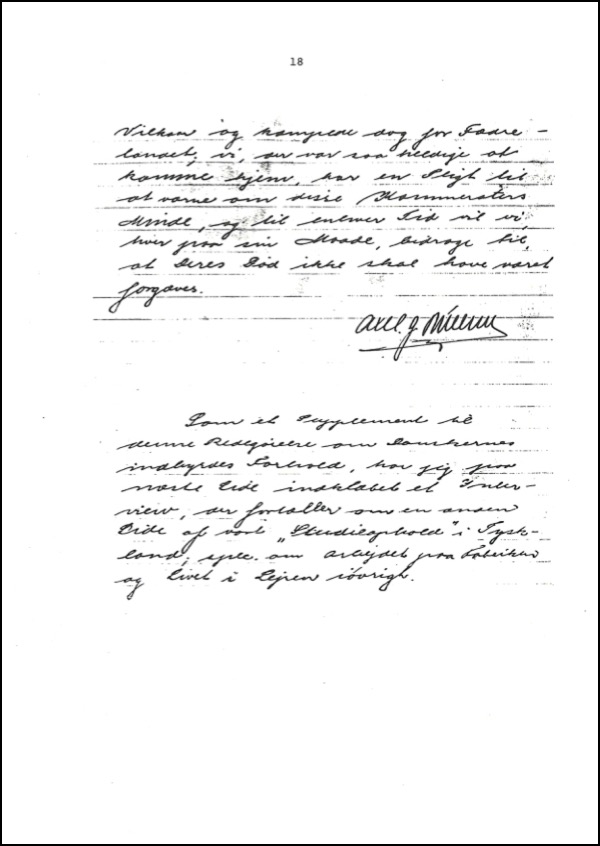 18
Vilkaar og kæmpede dog for Fædre-
landet; vi, der var saa heldige at
komme hjem, har en Pligt til
at værne om disse Kammeraters
Minde, og til enhver Tid vil vi,
hver paa sin Maade, bidrage til,
at Deres Død ikke skal have været
forgæves.
Axel J.
Som et Supplement til
denne Redegørelse om Danskernes
indbyrdes Forhold, har jeg paa
næste Side indklæbet et Inter-
view, der fortæller om en anden
Side af vort "Studieophold" i Tysk-
land; spec. om Arbejdet paa Fabriken
og Livet i Lejren iøvrigt.